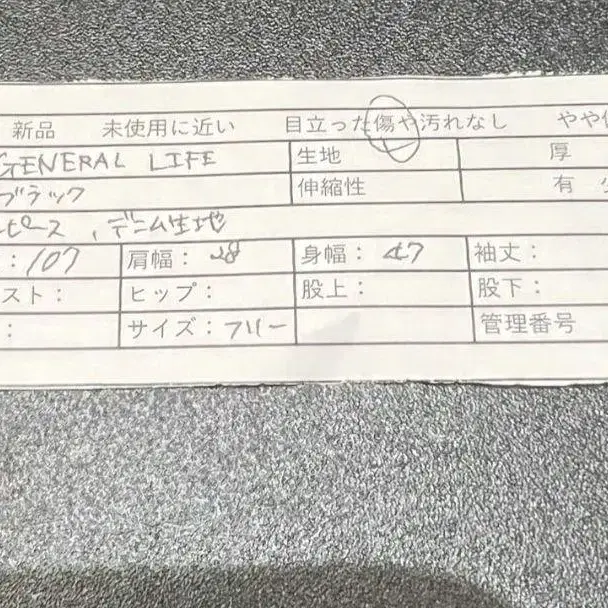 新品 未使用に近い 目立った傷や汚れなし やや
GENERAL LIFE 生地 厚
ブラック 伸縮性 有
ピース、デニム生地
:107 肩幅: 28 身幅: 47 袖丈:
スト: ヒップ: 股上: 股下:
: サイズ:フリー 管理番号